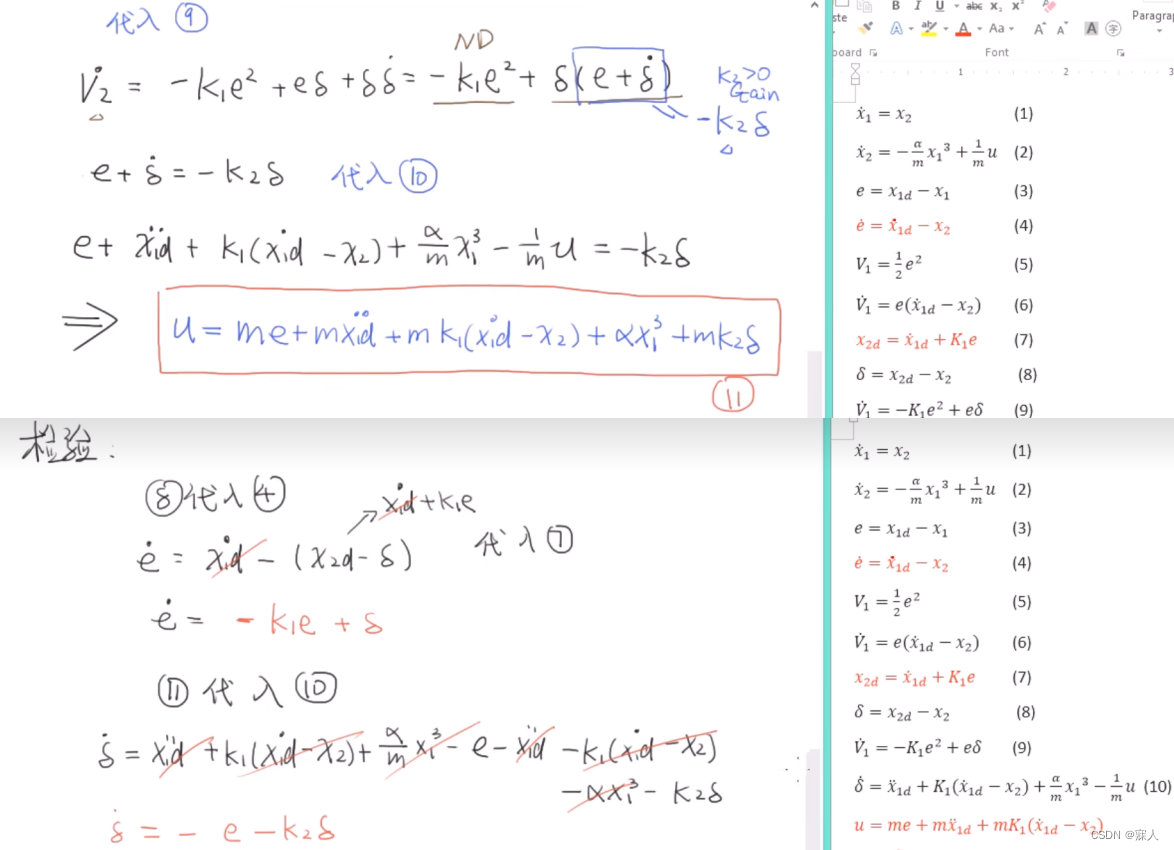 代入 ⑨
V̇₂ = -k₁e² + eδ + δδ̇ = -k₁e² + δ(e+δ̇)
ND
k₂>0
Gain
-k₂δ
e + δ̇ = -k₂δ 代入 ⑩
e + ẍ₁d + k₁(ẋ₁d - x₂) + α/m x₁³ - 1/m u = -k₂δ
⇒ u = me + mẍ₁d + mk₁(ẋ₁d - x₂) + αx₁³ + mk₂δ
⑪
ste
B I U abc x₂ x²
Aa A A A 字
Paragra
board
Font
1 2 3
ẋ₁ = x₂ (1)
ẋ₂ = -α/m x₁³ + 1/m u (2)
e = x₁d - x₁ (3)
ė = ẋ₁d - x₂ (4)
V₁ = 1/2 e² (5)
V̇₁ = e(ẋ₁d - x₂) (6)
x₂d = ẋ₁d + K₁e (7)
δ = x₂d - x₂ (8)
V̇₁ = -K₁e² + eδ (9)
检验:
⑧代入④
ẋ₁d + k₁e
ė = ẋ₁d - (x₂d - δ) 代入⑦
ė = -k₁e + δ
⑪ 代入 ⑩
δ̇ = ẍ₁d + k₁(ẋ₁d - x₂) + α/m x₁³ - e - ẍ₁d - k₁(ẋ₁d - x₂)
- αx₁³ - k₂δ
δ̇ = - e - k₂δ
ẋ₁ = x₂ (1)
ẋ₂ = -α/m x₁³ + 1/m u (2)
e = x₁d - x₁ (3)
ė = ẋ₁d - x₂ (4)
V₁ = 1/2 e² (5)
V̇₁ = e(ẋ₁d - x₂) (6)
x₂d = ẋ₁d + K₁e (7)
δ = x₂d - x₂ (8)
V̇₁ = -K₁e² + eδ (9)
δ̇ = ẍ₁d + K₁(ẋ₁d - x₂) + α/m x₁³ - 1/m u (10)
u = me + mẍ₁d + mK₁(ẋ₁d - x₂)
CSDN @寐人